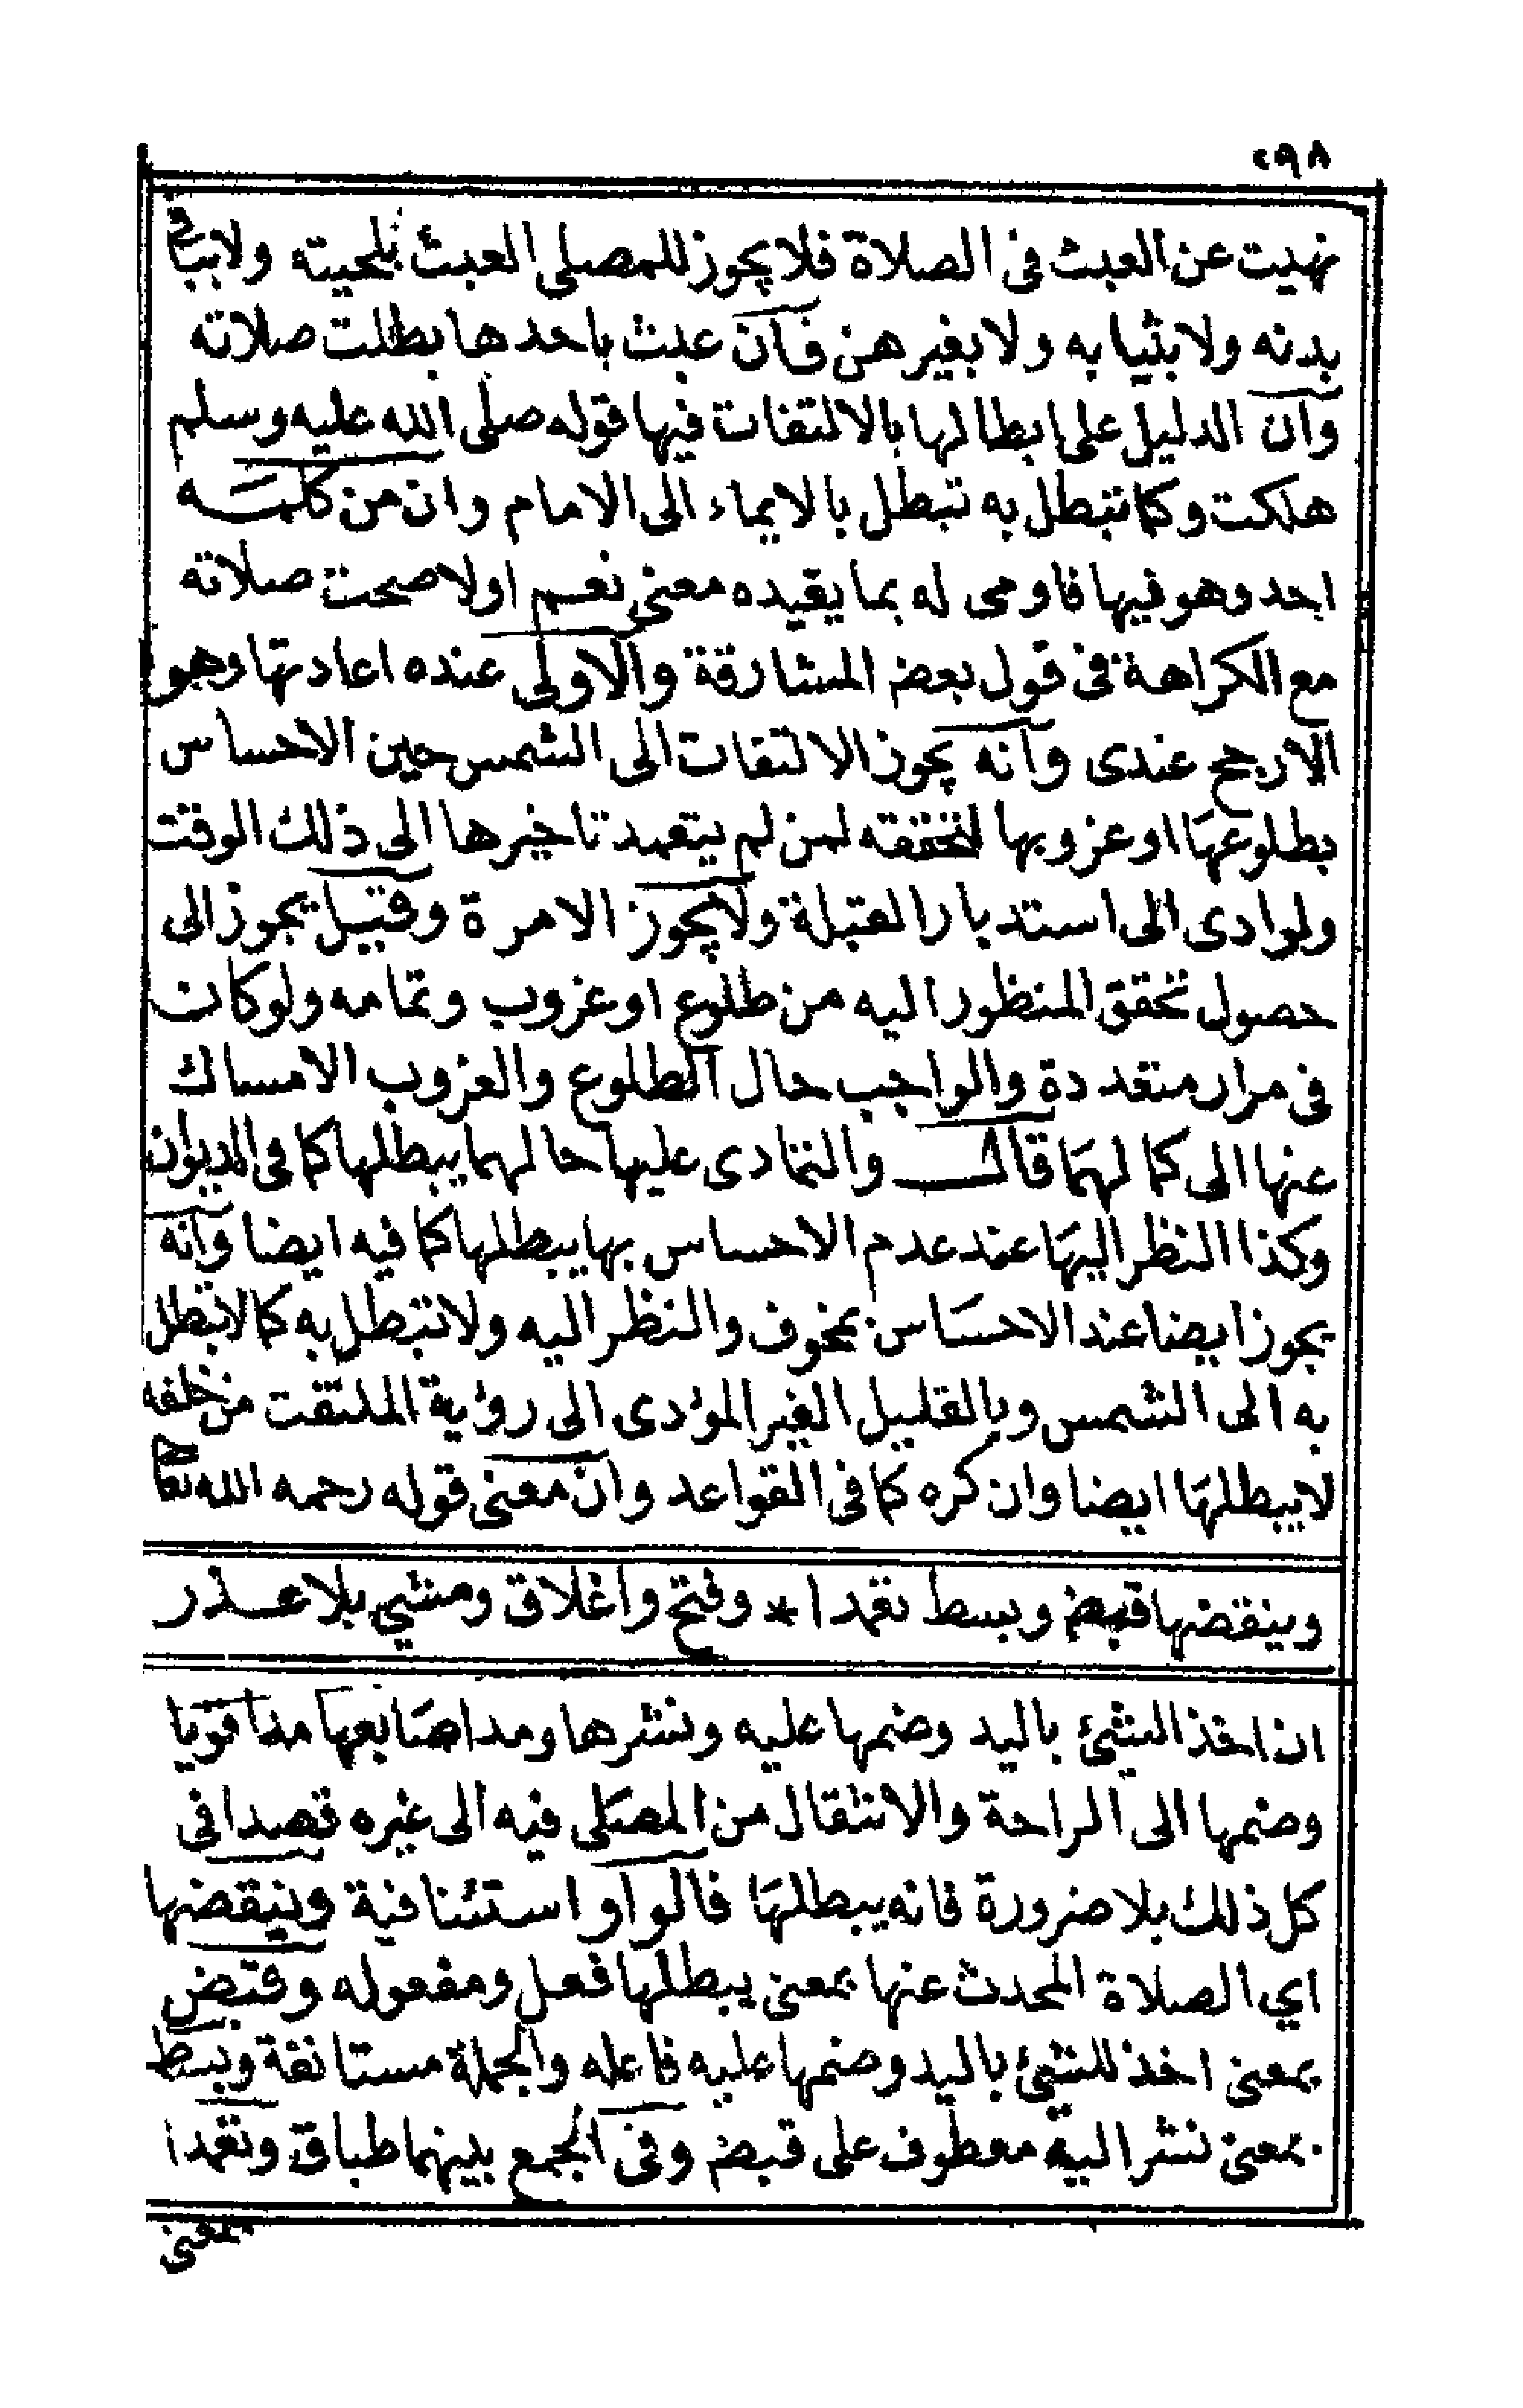 ٢٩٨
نهيت عن العبث فى الصلاة فلا يجوز للمصلى العبث بلحيته ولا بباقى
بدنه ولا بثيابه ولا بغيرهن فان عبث باحدها بطلت صلاته
وان الدليل على ابطالها بالالتفات فيها قوله صلى الله عليه وسلم
هلكت وكما تبطل به تبطل بالايماء الى الامام وان من كلمه
احد وهو فيها فاومى له بما يفيده معنى نعم اولا صحت صلاته
مع الكراهة فى قول بعض المشارقة والاولى عنده اعادتها وهو
الارجح عندى وانه يجوز الالتفات الى الشمس حين الاحساس
بطلوعها او غروبها لتحققه لمن لم يتعمد تاخيرها الى ذلك الوقت
ولو ادى الى استدبار القبلة ولا يجوز الا مرة وقيل يجوز الى
حصول تحقق المنظور اليه من طلوع او غروب وتمامه ولو كان
فى مرار متعددة والواجب حال الطلوع والغروب الامساك
عنها الى كمالهما قال والتمادى عليها حالهما يبطلها كما فى الديوان
وكذا النظر اليها عند عدم الاحساس بها يبطلها كما فيه ايضا وانه
يجوز ايضا عند الاحساس بمخوف والنظر اليه ولا تبطل به كما لا تبطل
به الى الشمس وبالقليل الغير المؤدى الى رؤية الملتفت من خلفه
لا يبطلها ايضا وان كره كما فى القواعد وان معنى قوله رحمه الله تعالى
وينقضها قبض وبسط تعمدا * وفتح واغلاق ومشي بلا عذر
ان اخذ الشئ باليد وضمها عليه ونشرها ومد اصابعها مدا قويا
وضمها الى الراحة والانتقال من المصلى فيه الى غيره قصدا فى
كل ذلك بلا ضرورة فانه يبطلها فالواو استئنافية وينقضها
اي الصلاة المحدث عنها بمعنى يبطلها فعل ومفعوله وقبض
بمعنى اخذ للشئ باليد وضمها عليه فاعله والجملة مستانفة وبسط
بمعنى نشر اليد معطوف على قبض وفى الجمع بينهما طباق وتعمدا
بمعنى